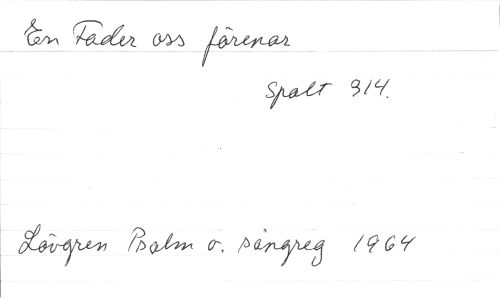 En Fader oss förenar
Spalt 314.
Lövgren Psalm o. sångreg 1964